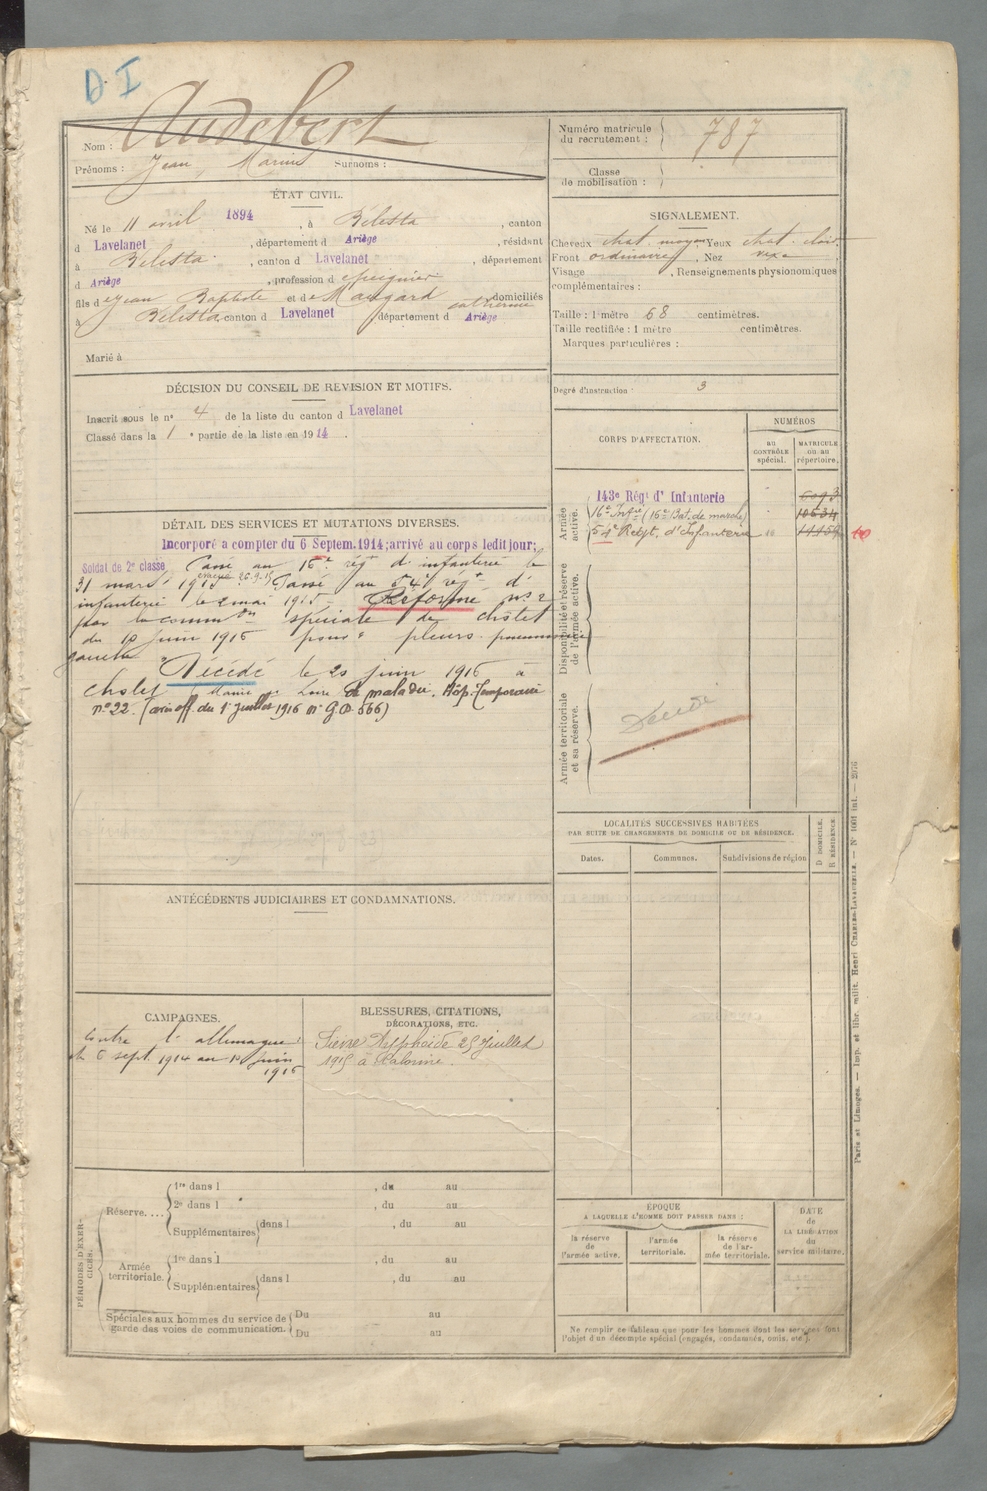 D I
Audebert
Nom :
Prénoms : Jean Marius Surnoms :
Numéro matricule du recrutement : 787
Classe de mobilisation :
ÉTAT CIVIL.
Né le 11 avril 1894, à Bélesta, canton
d Lavelanet, département d Ariège, résidant
à Bélesta, canton d Lavelanet, département
d Ariège, profession d
fils de Jean Baptiste et de Maugard Catherine domiciliés
à Bélesta, canton d Lavelanet département d Ariège
Marié à
SIGNALEMENT.
Cheveux chat. moyen Yeux chat. clair
Front ordinaire, Nez vexe
Visage , Renseignements physionomiques
complémentaires :
Taille : 1 mètre 68 centimètres.
Taille rectifiée : 1 mètre centimètres.
Marques particulières :
Degré d'instruction : 3
DÉCISION DU CONSEIL DE REVISION ET MOTIFS.
Inscrit sous le n° 4 de la liste du canton d Lavelanet
Classé dans la 1 e partie de la liste en 1914.
CORPS D'AFFECTATION.
NUMÉROS
AU CONTRÔLE spécial.
MATRICULE ou au répertoire.
Armée active.
143e Régt d'Infanterie
16e Infie (16e Bat. de marche) 10534
54e Régt d'Infanterie
Disponibilité et réserve de l'armée active.
Armée territoriale et sa réserve.
Décédé
DÉTAIL DES SERVICES ET MUTATIONS DIVERSES.
Incorporé a compter du 6 Septem. 1914; arrivé au corps ledit jour;
Soldat de 2e classe Passé au 16e régt d'infanterie le
31 mars 1915 Passé au 54e régt d'
infanterie le 2 mai 1915. Réformé n° 2
par la commion spéciale de cholet
du 10 juin 1916 pour pleuro-pneumonie
gauche
Décédé le 20 juin 1916 à
Cholet (Maine et Loire de maladie. Hôp. Temporaire
n° 22. (avis off. du 1er Juillet 1916 n° GD 566)
LOCALITÉS SUCCESSIVES HABITÉES
PAR SUITE DE CHANGEMENTS DE DOMICILE OU DE RÉSIDENCE.
Dates.
Communes.
Subdivisions de région
D DOMICILE.
R RÉSIDENCE
ANTÉCÉDENTS JUDICIAIRES ET CONDAMNATIONS.
CAMPAGNES.
Contre l'allemagne:
du 6 sept. 1914 au 10 juin
1916
BLESSURES, CITATIONS,
DÉCORATIONS, ETC.
Fièvre Typhoïde 25 Juillet
1915 à
PÉRIODES D'EXERCICES.
Réserve....
1re dans l , du au
2e dans l , du au
Supplémentaires dans l , du au
Armée territoriale.
1re dans l , du au
Supplémentaires dans l , du au
Spéciales aux hommes du service de garde des voies de communication.
Du au
Du au
ÉPOQUE
A LAQUELLE L'HOMME DOIT PASSER DANS :
la réserve de l'armée active.
l'armée territoriale.
la réserve de l'armée territoriale.
DATE de LA LIBÉRATION du service militaire.
Ne remplir ce tableau que pour les hommes dont les services font
l'objet d'un décompte spécial (engagés, condamnés, omis, etc.).
Paris et Limoges. — Imp. et libr. milit. Henri CHARLES-LAVAUZELLE. — N° 1001 int. —